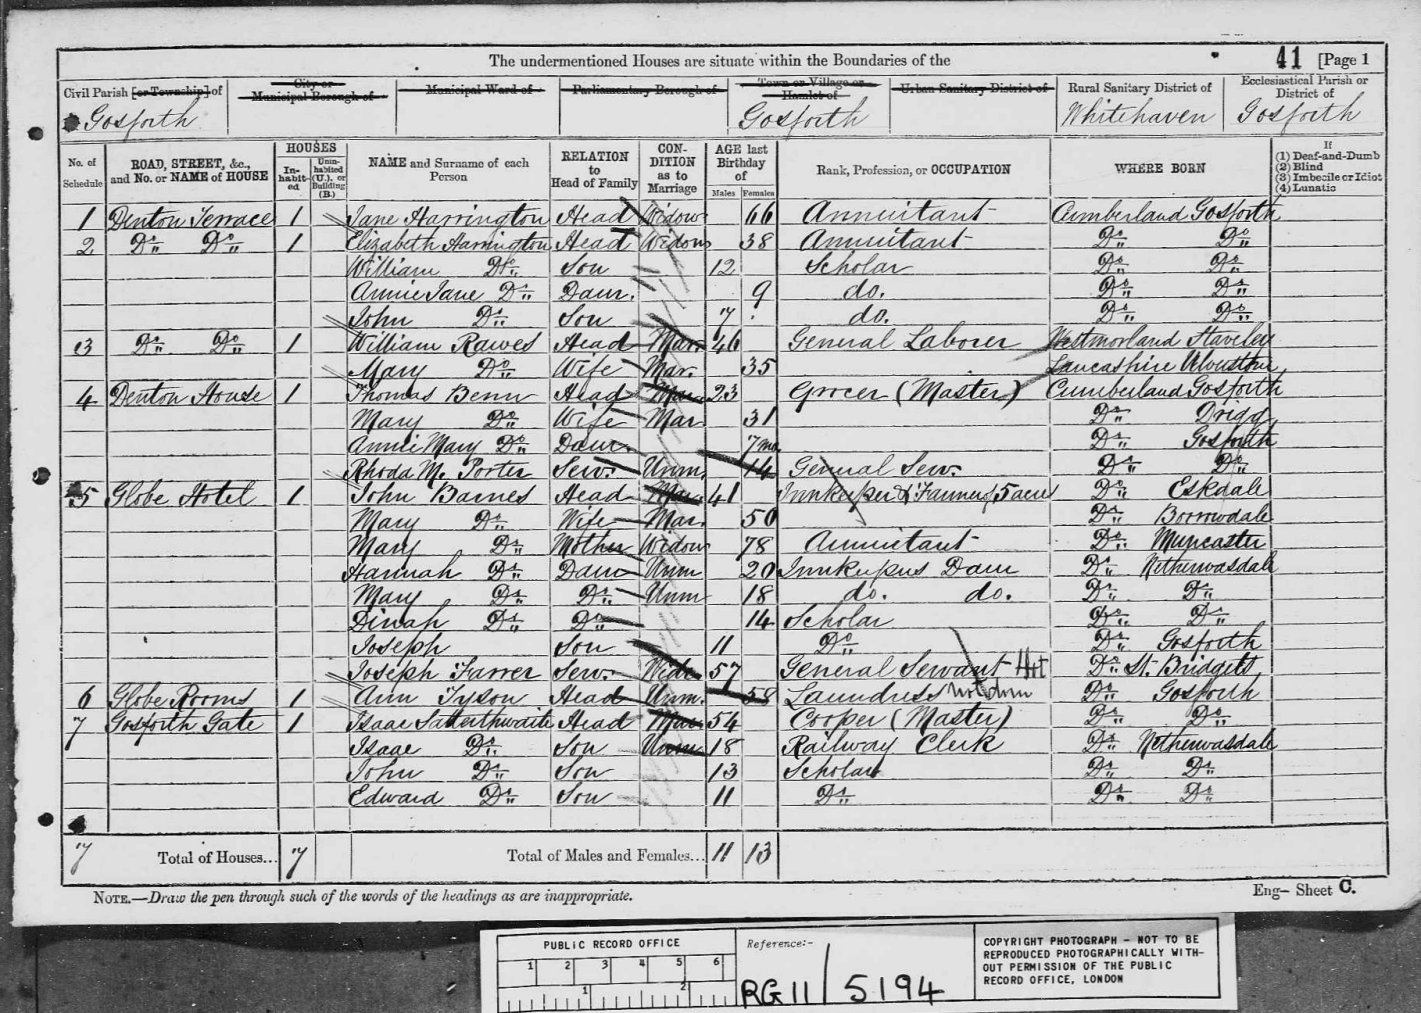 The undermentioned Houses are situate within the Boundaries of the 41 [Page 1
Civil Parish [or Township] of City or Municipal Borough of Municipal Ward of Parliamentary Borough of Town or Village or Hamlet of Urban Sanitary District of Rural Sanitary District of Ecclesiastical Parish or District of
Gosforth Gosforth Whitehaven Gosforth
No. of Schedule ROAD, STREET, &c., and No. or NAME of HOUSE HOUSES Inhabited Uninhabited (U.), or Building (B.) NAME and Surname of each Person RELATION to Head of Family CONDITION as to Marriage AGE last Birthday of Males Females Rank, Profession, or OCCUPATION WHERE BORN If (1) Deaf-and-Dumb (2) Blind (3) Imbecile or Idiot (4) Lunatic
1 Denton Terrace 1 Jane Harrington Head Widow 66 Annuitant Cumberland Gosforth
2 Do Do 1 Elizabeth Harrington Head Widow 38 Annuitant Do Do
William Do Son 12 Scholar Do Do
Annie Jane Do Daur. 9 do. Do Do
John Do Son 7 do. Do Do
3 Do Do 1 William Rawes Head Mar. 46 General Laborer Westmorland Staveley
Mary Do Wife Mar. 35 Lancashire Ulverstone
4 Denton House 1 Thomas Benn Head Mar. 23 Grocer (Master) Cumberland Gosforth
Mary Do Wife Mar. 31 Do Drigg
Annie Mary Do Daur. 7mo Do Gosforth
Rhoda M. Porter Serv. Unm. 14 General Serv. Do Do
5 Globe Hotel 1 John Barnes Head Mar. 41 Innkeeper & Farmer of 5 acres Do Eskdale
Mary Do Wife Mar. 50 Do Borrowdale
Mary Do Mother Widow 78 Annuitant Do Muncaster
Hannah Do Daur Unm 20 Innkeepers Daur Do Netherwasdale
Mary Do Do Unm 18 do. do. Do Do
Dinah Do Do 14 Scholar Do Do
Joseph Son 11 Do Do Gosforth
Joseph Farrer Serv. Widr 57 General Servant Do St. Bridgets
6 Globe Rooms 1 Ann Tyson Head Unm. 58 Laundress Do Gosforth
7 Gosforth Gate 1 Isaac Satterthwaite Head Mar. 54 Cooper (Master) Do Do
Isaac Do Son Unm 18 Railway Clerk Do Netherwasdale
John Do Son 13 Scholar Do Do
Edward Do Son 11 Do Do Do
7 Total of Houses... 7 Total of Males and Females... 11 13
NOTE.—Draw the pen through such of the words of the headings as are inappropriate. Eng– Sheet C.
PUBLIC RECORD OFFICE
1 2 3 4 5 6
1 2
Reference:-
RG 11 / 5194
COPYRIGHT PHOTOGRAPH - NOT TO BE
REPRODUCED PHOTOGRAPHICALLY WITH-
OUT PERMISSION OF THE PUBLIC
RECORD OFFICE, LONDON